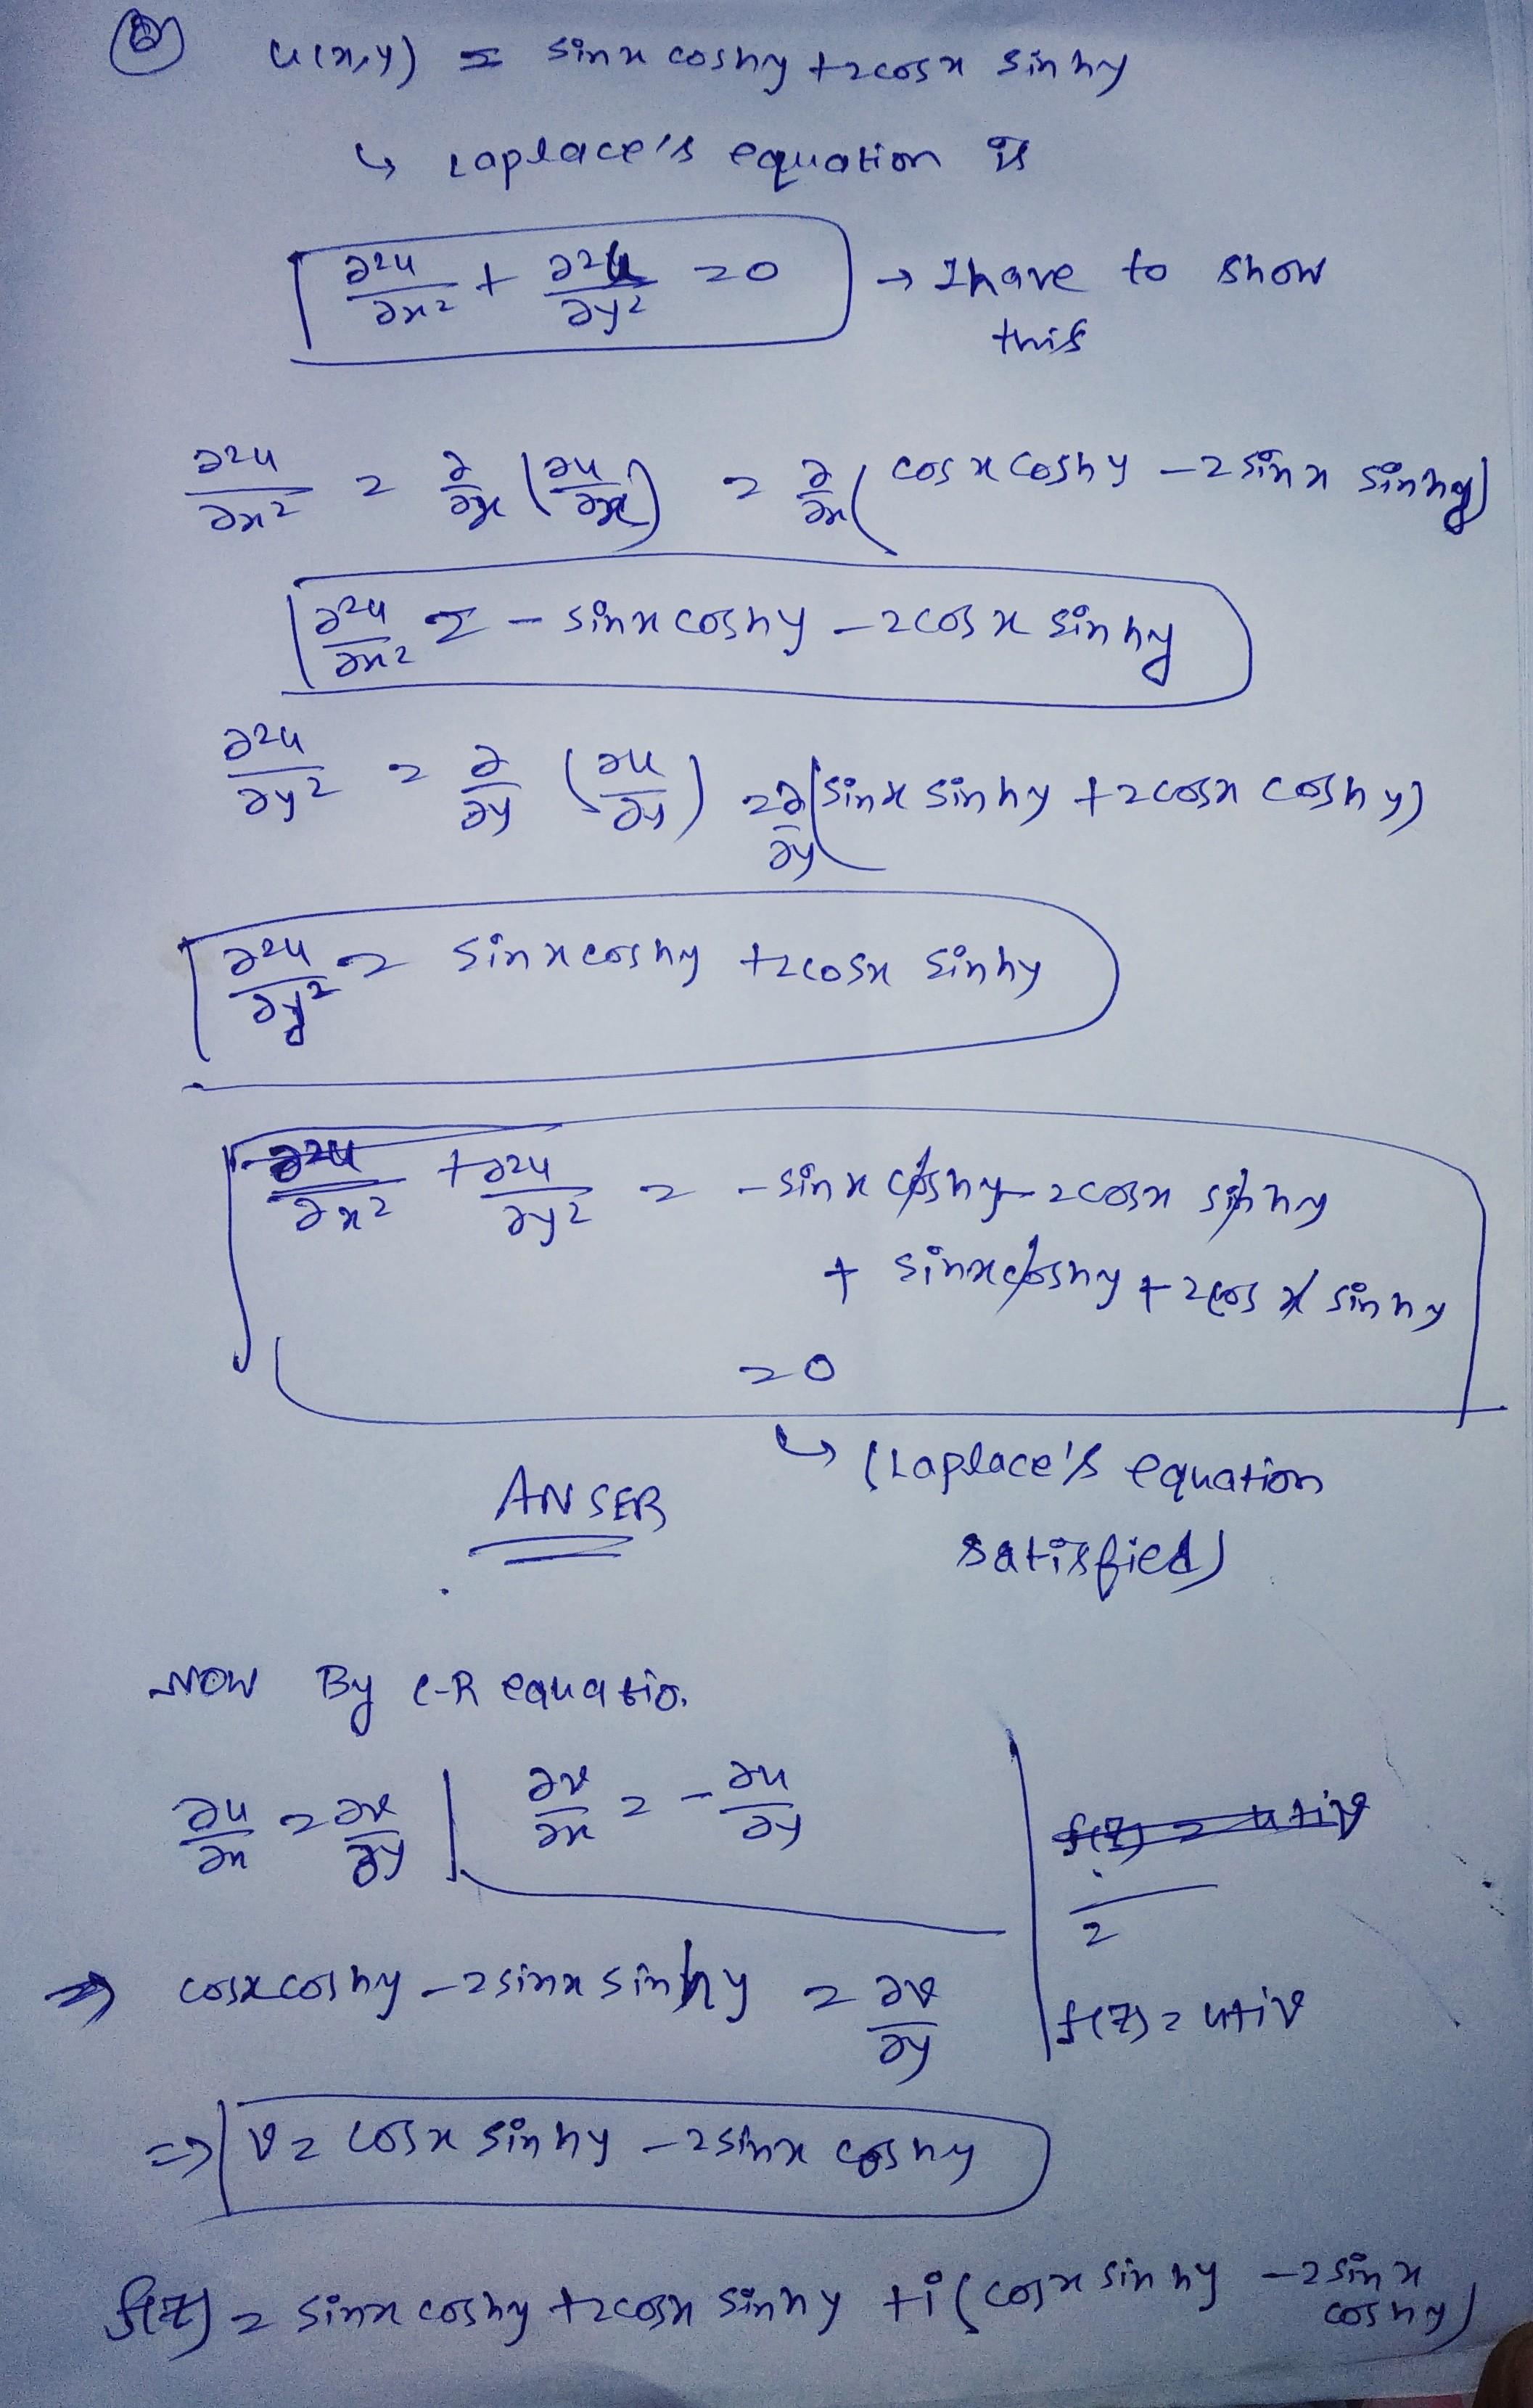 ⑥ u(x,y) = sinx coshy +2cosx sinhy
↳ Laplace's equation is
∂²u/∂x² + ∂²u/∂y² = 0 → I have to show
this
∂²u/∂x² = ∂/∂x (∂u/∂x) = ∂/∂x (cosx coshy -2 sinx sinhy)
∂²u/∂x² = - sinx coshy - 2cosx sinhy
∂²u/∂y² = ∂/∂y (∂u/∂y) = ∂/∂y (sinx sinhy +2cosx coshy)
∂²u/∂y² = sinx coshy +2cosx sinhy
∂²u/∂x² + ∂²u/∂y² = - sinx coshy - 2cosx sinhy
+ sinx coshy + 2cosx sinhy
= 0
↳ (Laplace's equation
ANSER
satisfied)
NOW By C-R equatio.
∂u/∂x = ∂v/∂y | ∂v/∂x = - ∂u/∂y
f(z) = u+iv
2
⇒ cosx coshy - 2sinx sinhy = ∂v/∂y
f(z) = u+iv
⇒ v = cosx sinhy - 2sinx coshy
f(z) = sinx coshy +2cosx sinhy +i(cosx sinhy -2sinx
coshy)